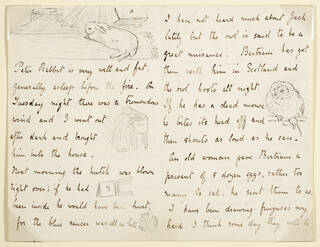 Peter Rabbit is very well and fat,
generally asleep before the fire. On
Tuesday night there was a tremendous
wind and I went out
after dark and brought
him into the house.
Next morning the hutch was blown
right over; if he had
been inside he would have been hurt,
for the blue saucer was all in bits.
I have not heard much about Jack
lately but the owl is said to be a
great nuisance. Bertram has got
them with him in Scotland and
the owl hoots all night.
If he has a dead mouse
he bites its head off and
then shouts as loud as he can.
An old woman gave Bertram a
present of 2 dozen eggs, rather too
many to eat. he sent them to us.
I have been drawing funguses very
hard, I think some day they will be